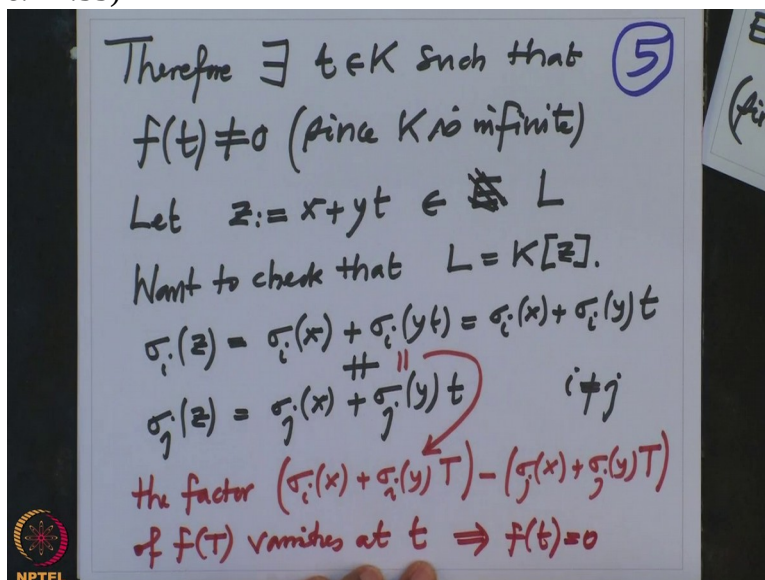 Therefore ∃ t ∈ K such that
5
f(t) ≠ 0 (since K is infinite)
Let z := x + yt ∈ L
Want to check that L = K[z].
σ_i(z) = σ_i(x) + σ_i(yt) = σ_i(x) + σ_i(y) t
≠ =
σ_j(z) = σ_j(x) + σ_j(y) t i ≠ j
the factor (σ_i(x) + σ_i(y) T) − (σ_j(x) + σ_j(y) T)
of f(T) vanishes at t ⇒ f(t) = 0
NPTEL